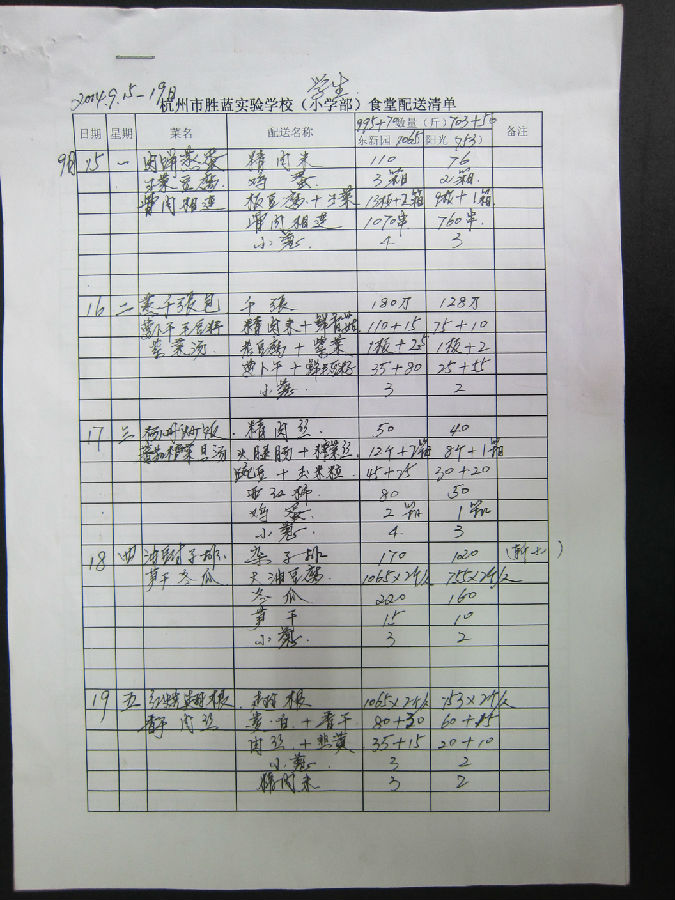 学生
2014.9.15-19日
杭州市胜蓝实验学校（小学部）食堂配送清单
日期 星期 菜名 配送名称 995+70 数量（斤） 703+50 备注
东新园 1065 阳光 753
9月15 一 肉饼蒸蛋 精肉末 110 76
豆腐 鸡蛋 3箱 2箱
骨肉相连 板豆腐+ 13板+2箱 9板+1箱
骨肉相连 1070串 760串
小葱 4 3
16 二 蒸千張包 千張 180 128
萝卜干毛豆籽 精肉末+鲜 110+15 75+10
紫菜汤 老豆腐+紫菜 1板+25 1板+2
萝卜干+鲜毛豆籽 35+80 25+15
小葱 3 2
17 三 扬州炒饭 精肉丝 50 40
榨菜旦汤 火腿肠+榨菜丝 12件+2箱 8件+1箱
豌豆+玉米粒 45+25 30+20
西红柿 80 50
鸡蛋 2箱 1箱
小葱 4 3
18 四 子排 杂子排 170 120
笋干冬瓜 大油豆腐 1065×2 755×2
冬瓜 220 160
笋干 15 10
小葱 3 2
19 五 红烧 1065×2 753×2
香干肉丝 黄豆+香干 80+30 60+15
肉丝+韭黄 35+15 20+10
小葱 3 2
精肉末 3 2